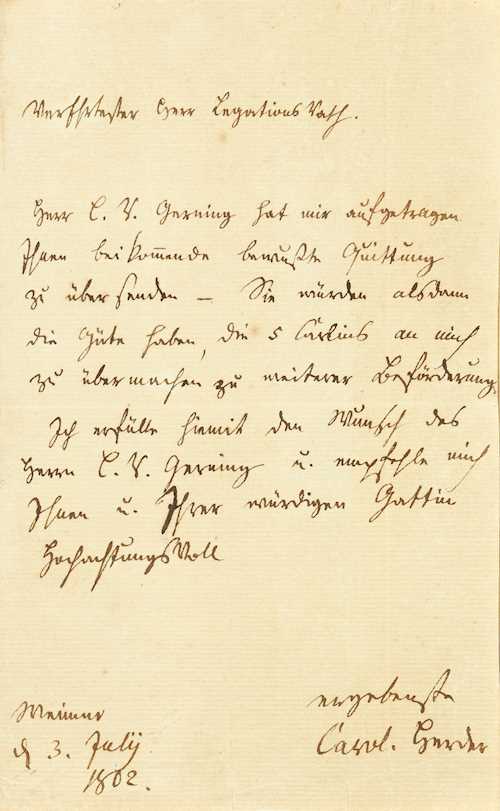 Verehrtester Herr Legations Rath.
Herr L. R. Gerning hat mir aufgetragen
Ihnen beikommende bewußte Quittung
zu übersenden — Sie würden alsdann
die Güte haben, die 5 Carlins an mich
zu übermachen zu weiterer Beförderung.
Ich erfülle hiemit den Wunsch des
Herrn L. R. Gerning u. empfehle mich
Ihnen u. Ihrer würdigen Gattin
HochachtungsVoll
ergebenste
Carol. Herder
Weimar
d 3. July
1802.